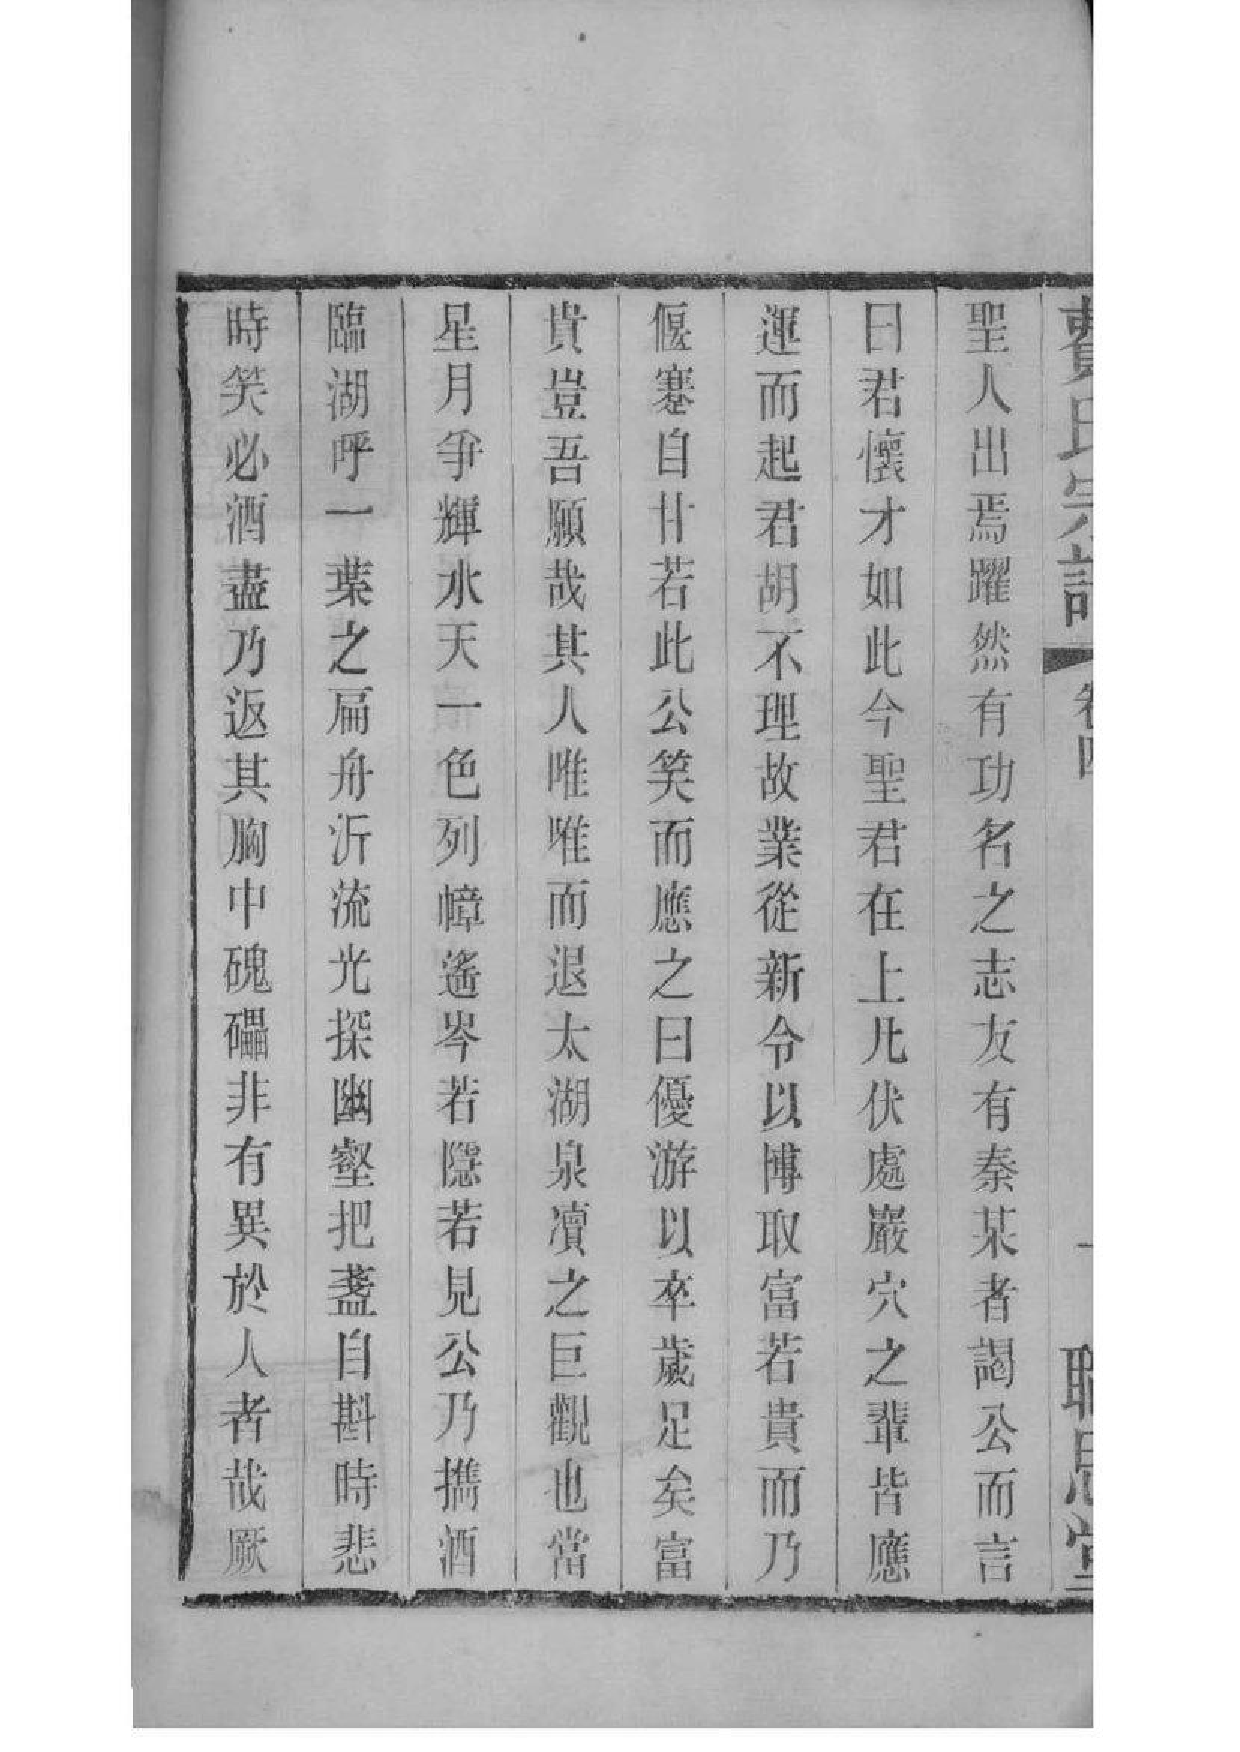 費氏宗譜 卷四 一 聽思堂
聖人出焉躍然有功名之志友有秦某者謁公而言
曰君懷才如此今聖君在上凡伏處巖穴之輩皆應
運而起君胡不理故業從新令以博取富若貴而乃
偃蹇自甘若此公笑而應之曰優游以卒歲足矣富
貴豈吾願哉其人唯唯而退太湖泉瀆之巨觀也當
星月爭輝水天一色列幛遙岑若隱若見公乃攜酒
臨湖呼一葉之扁舟泝流光探幽壑把盞自斟時悲
時笑必酒盡乃返其胸中磈礧非有異於人者哉厥